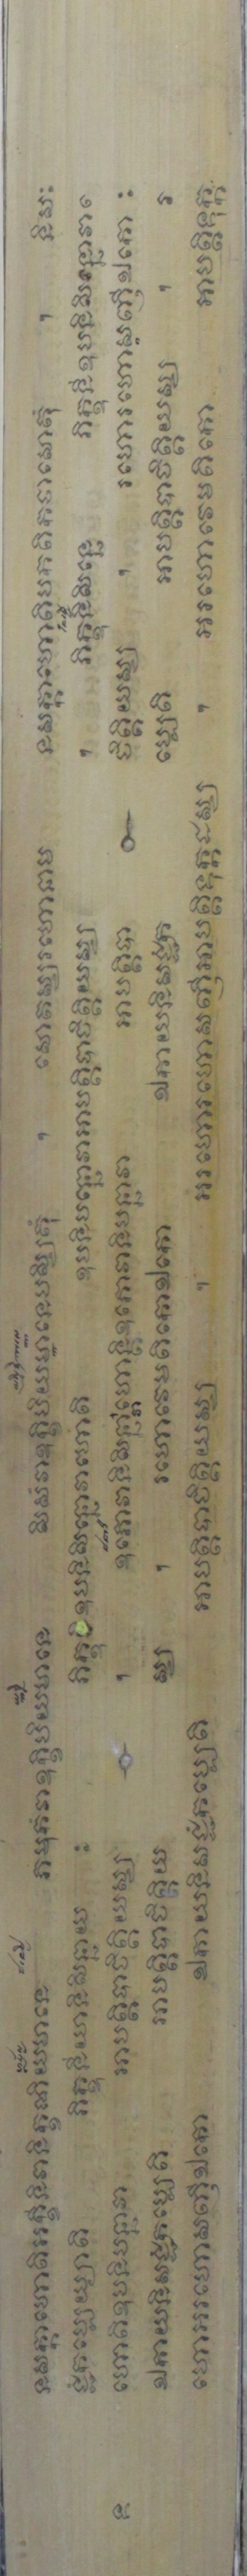 នសក្កាហោតិអក្ខឹនិវានិក្ខណិយមានេ ភមុកំវាឧក្ខិបិយមានេ សិសំវាឧក្ខិបិយមានេបស្សិតុំ ។ សោតស្សរហោនាម នសក្កាហោតិបកតិកថាសោតុំ ។ និសៈ
ជ្ជំកប្បេយ្យាតិ ភិក្ខុនីយានិសិន្នាយ ៖ ភិក្ខុនិឧបនិសិន្នោវាហោតិ ឧបនិបន្នោវាអាបត្តិបាចិត្តិយស្ស ។ ភិក្ខុនិសិន្នេ ភិក្ខុនីឧបនិសិន្នាវា
ន ហោតិឧបនិបន្នាវា អាបត្តិបាចិត្តិយស្ស ។ ឧភោវានិសិន្នាហោន្តិឧភោវានិបន្នាវា អាបត្តិបា ចិត្តិយស្ស ។ រហោរហោសញ្ញីឯកោ ៖
ឯកាយនិសជ្ជំកប្បេតិ អាបត្តិបាចិត្តិយ ស្ស ។ រហោវេមតិកោឯកោ ឯកាយនិសជ្ជំក ប្បេតិ អាបត្តិបាចិត្តិយស្ស ។ រ
ហោអរហោសញ្ញីឯកោ ឯកាយនិសជ្ជំកប្បេតិ អាបត្តិបាចិត្តិយស្ស ។ អរហោរហោសញ្ញីអាបត្តិទុក្កដស្ស ។ អរហោវេមតិកោ អាបត្តិទុក្ក